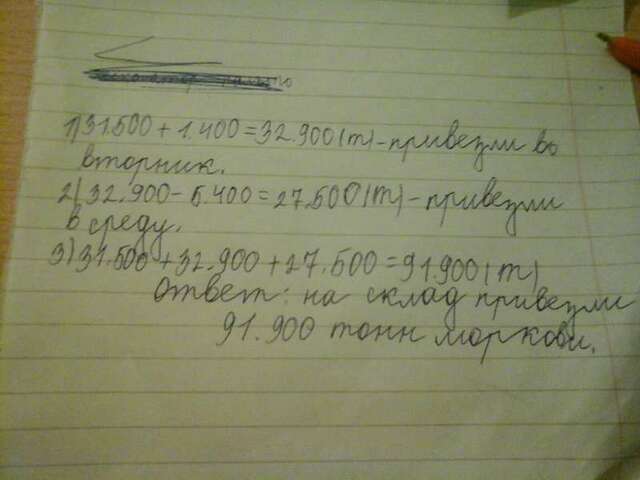 1) 31.500 + 1.400 = 32.900 (т) - привезли во
вторник.
2) 32.900 - 5.400 = 27.500 (т) - привезли
в среду.
3) 31.500 + 32.900 + 27.500 = 91.900 (т)
Ответ: на склад привезли
91.900 тонн моркови.